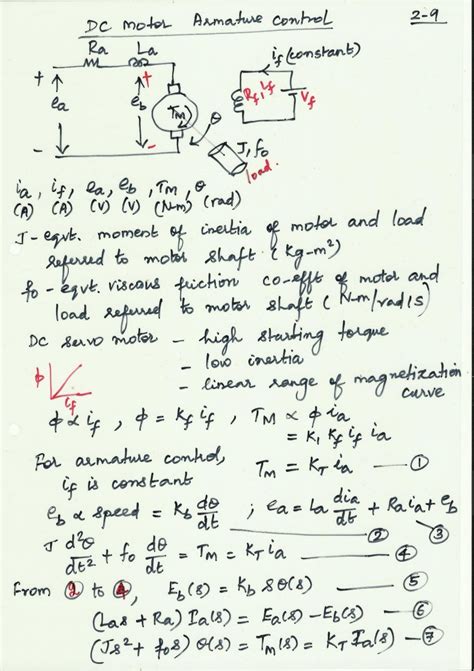 DC Motor Armature control 2-9
Ra La
if (constant)
+ + Rf, Lf Vf
ea eb TM θ
- - J, f0
load.
ia, if, ea, eb, TM, θ
(A) (A) (V) (V) (N-m) (rad)
J - eqvt. moment of inertia of motor and load
referred to motor shaft (Kg-m²)
f0 - eqvt. viscous friction co-efft of motor and
load referred to motor shaft (N-m/rad/s)
DC servo motor - high starting torque
- low inertia
- linear range of magnetization
curve
φ
if
φ ∝ if , φ = Kf if , TM ∝ φ ia
= K1 Kf if ia
For armature control, TM = KT ia — ①
if is constant
eb ∝ speed = Kb dθ/dt — ② ; ea = La dia/dt + Ra ia + eb — ③
J d²θ/dt² + f0 dθ/dt = TM = KT ia — ④
From ② to ④, Eb(s) = Kb s θ(s) — ⑤
(Las + Ra) Ia(s) = Ea(s) - Eb(s) — ⑥
(Js² + f0s) θ(s) = TM(s) = KT Ia(s) — ⑦